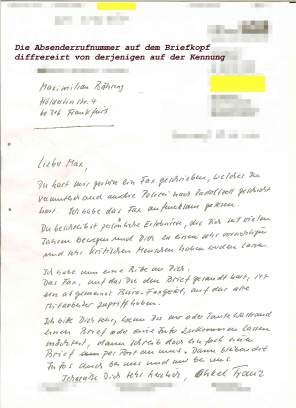 Die Absenderrufnummer auf dem Briefkopf
diffrereirt von derjenigen auf der Kennung
Maximilian Bähring
Hölderlinstr. 4
60316 Frankfurt
Lieber Max,
Du hast mir gestern ein Fax geschrieben, welches Du
vermutlich auch an die Polizei nach geschickt
hast. Ich habe das Fax aufmerksam gelesen.
Du beschreibst persönliche Erlebnisse, die Dich seit vielen
Jahren bewegen und Dich zu einem sehr
und sehr kritischen Menschen haben werden lassen.
Ich habe nun eine Bitte an Dich.
Das Fax, auf das Du den Brief gesandt hast, ist
ein allgemeines Büro-Faxgerät, auf das alle
Mitarbeiter Zugriff haben.
Ich bitte Dich sehr, wenn Du mir oder Tante
einen Brief oder eine Info zukommen lassen
möchtest, dann schreib doch einfach einen
Brief per Post an uns. Dann bleiben die
Infos auch bei uns und nur bei uns.
Dich sehr herzlich, Onkel Franz